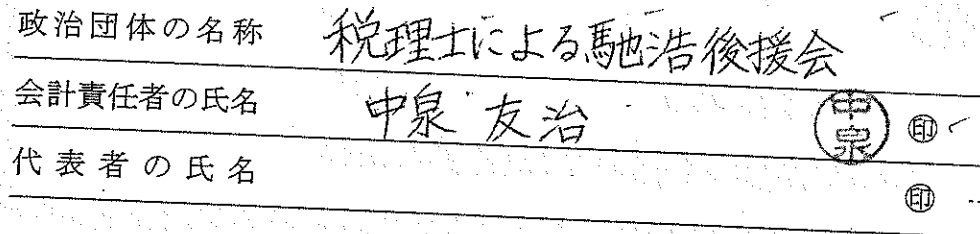 政治団体の名称 税理士による馳浩後援会
会計責任者の氏名 中泉 友治 中泉 印
代表者の氏名 印